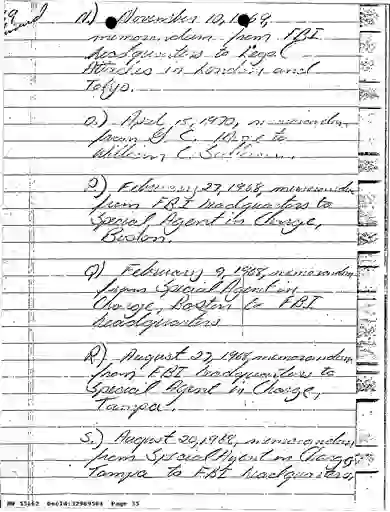 N.) November 10, 1969,
memorandum from FBI
headquarters to Legal
Attaches in London and
Tokyo.
O.) April 15, 1970, memorandum
from G. C. Moore to
William C. Sullivan.
P.) February 27, 1968, memorandum
from FBI headquarters to
Special Agent in Charge,
Boston.
Q.) February 9, 1968, memorandum
from Special Agent in
Charge, Boston to FBI
headquarters
R.) August 27, 1968, memorandum
from FBI headquarters to
Special Agent in Charge,
Tampa.
S.) August 20, 1968, memorandum
from Special Agent in Charge
Tampa to FBI headquarters,
DocId:32989584 Page 35